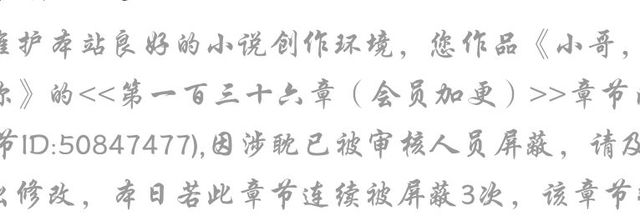 护本站良好的小说创作环境，您作品《小哥，
》的<<第一百三十六章（会员加更）>>章节
节ID:50847477),因涉耽已被审核人员屏蔽，请及
修改，本日若此章节连续被屏蔽3次，该章节